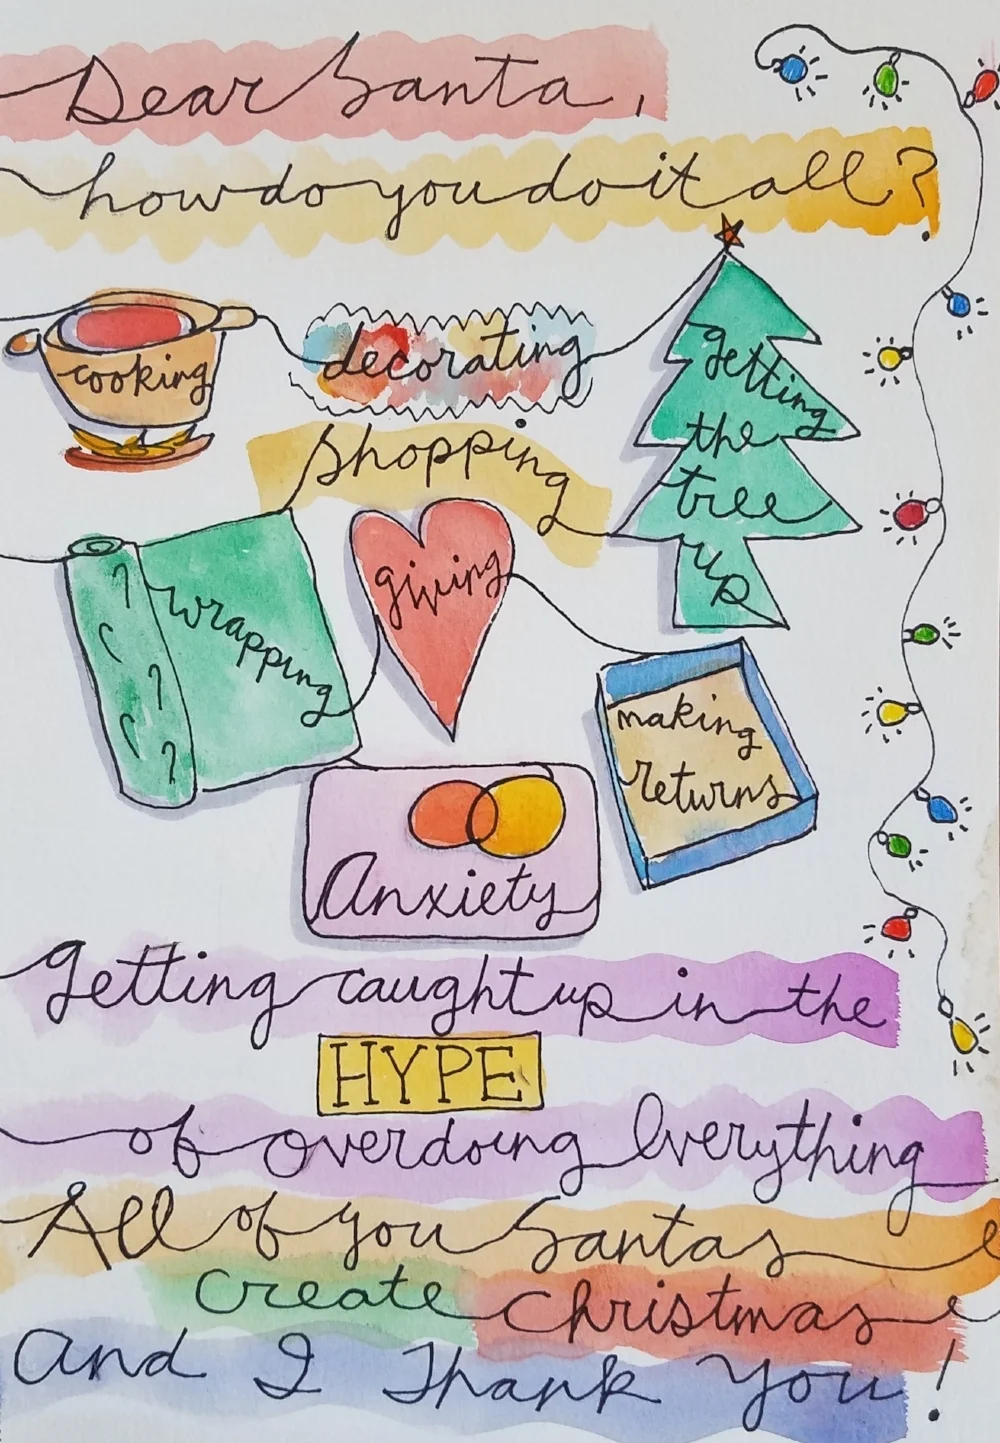 Dear Santa,
how do you do it all?
cooking
decorating
getting
the
tree
up
shopping
wrapping
giving
making
returns
Anxiety
getting caught up in the
HYPE
of overdoing Everything
All of you Santas
Create Christmas
And I Thank You!